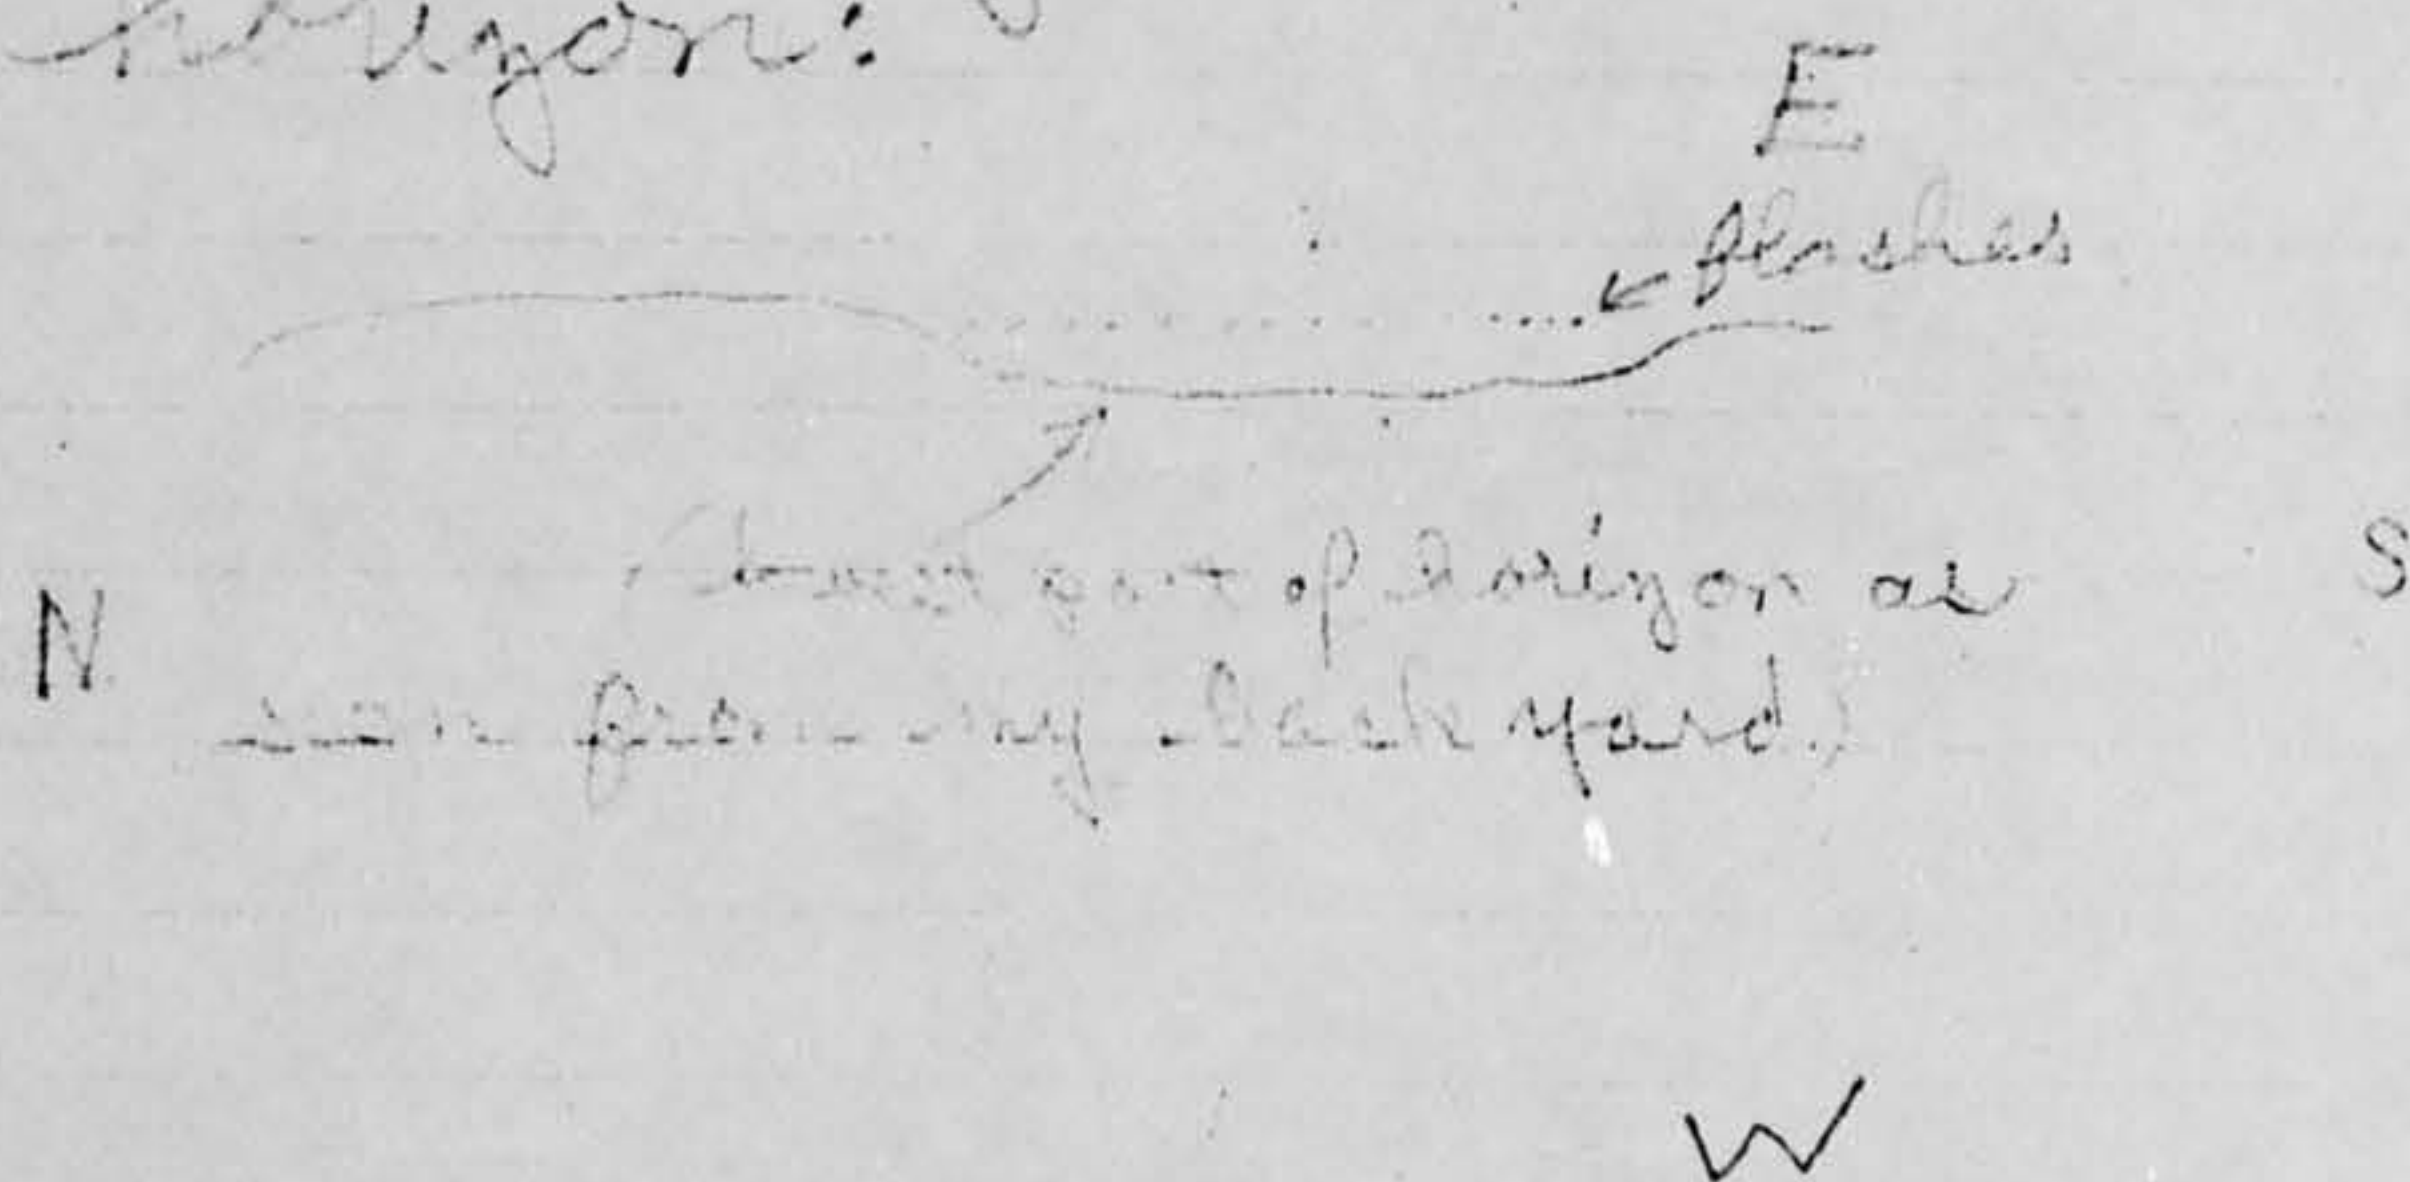 horizon:
E
flashes
part of horizon as
N
S
seen from my back yard.)
W